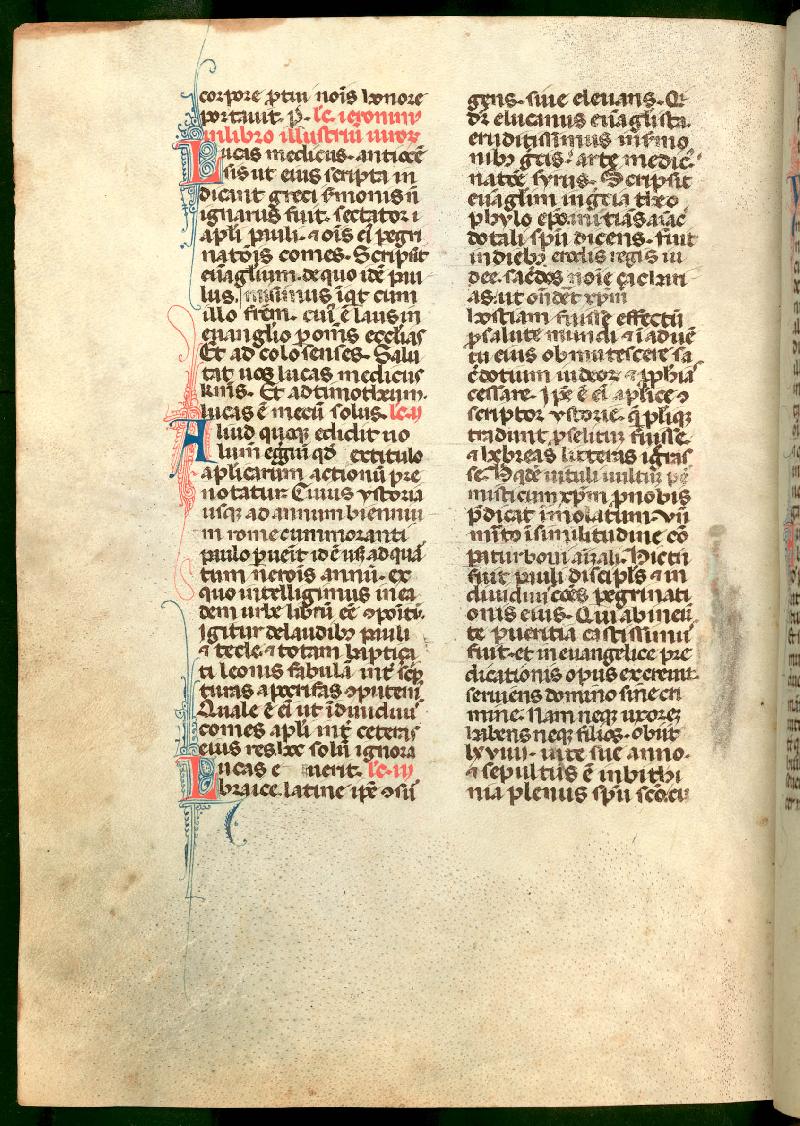 corpore ꝓtui noīs honore
portauit. p̄. lc̄. ieronimi
in libro illustriū uiroꝝ
Lucas medicus. antiocē
sis ut eius scripta in
dicant greci s̄monis ñ
ignarus fuit. sectator
apl̄i pauli. ⁊ oīs ei᷑ pegri
natoīs comes. Scripsit
euāglium. de quo idē pau
lus. misimus īqt cum
illo frēm. cui᷑ ē laus in
euanglio ꝑ om̄s eccl̄ias
Et ad colosenses. Salu
tat uos lucas medicus
kmūs. Et ad timotheum.
lucas ē mecū solus. lc̄. ii
Aliud quoqꝫ edidit uo
lum eg̅iū qd̄ et titulo
aplicarum actionū pre
notatur Cuius ystoria
usqꝫ ad annum bienniū
in rome cummoranti
paulo ꝑuēit id ē usqꝫ ad quā
tum neroīs annū. ex
quo intelligimus in ea
dem urbe librū eē ꝯpoitū.
Igitur de laudibꝫ pauli
⁊ tecle. ⁊ totam baptiça
ti leonis fabulā int̄ sc̄p
turas apocrifas ꝯputem᷑
Quale ē ei᷑ ut īdiuiduu᷑
comes apl̄i int̄ ceteras
eius res hoc solū ignora
uerit. lc̄. iii
Lucas e
braice. latine ip̄e ꝯsu᷑
gens. siue eleuans. Q᷑
dr̄ elucanus euāglista.
eruditissimus in s̄mo
nibꝫ gr̄is. arte medic᷑
natōe syrus. Scripsit
euāglm in gr̄ia theo
phylo ep̄o initias a iac
dotali sp̄u dicens. Fuit
in diebꝫ erodis regis iu
dee. sac̄dos noīe çachari
as. ut on̄det xp̄m
hostiam fuisse effectū
ꝓ salute mundi ⁊ ī aduē
tu eius obmutescere sa
c̄dotum iudeoꝝ ⁊ ꝓphīa᷑
cessare. Ip̄e ē ⁊ aplice
scriptor ystorie. q̄ pliqꝫ
tradunt ꝓselitū fuisse.
⁊ hebreas litteras igras
se. Hꝰ qdē uituli uultū pe᷑
misticum xp̄m ꝓ nobis
p̄dicat īmolatum. Vn̄
m̄ito ī similitudine cō
patur boui aīali. Hic tn̄
fuit pauli discipl̄s ⁊ in
diuiduu᷑ com̄s pegrinati
onis eius. Qui ab ineū
te pueritia castissimu᷑
fuit. et in euangelice pre
dicationis opus exercuit
seruiens domino sine cri
mine. Nam neqꝫ uxorē
habens neqꝫ filios. obiit
lxxiiii. uite sue anno.
⁊ sepultus ē in bithi
nia plenus sp̄u sc̄o. tu